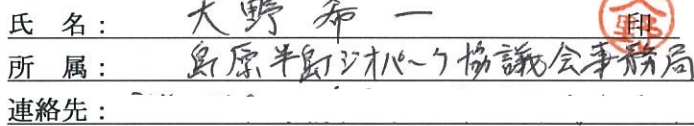 氏 名： 大野希一 印
所 属： 島原半島ジオパーク協議会事務局
連絡先：